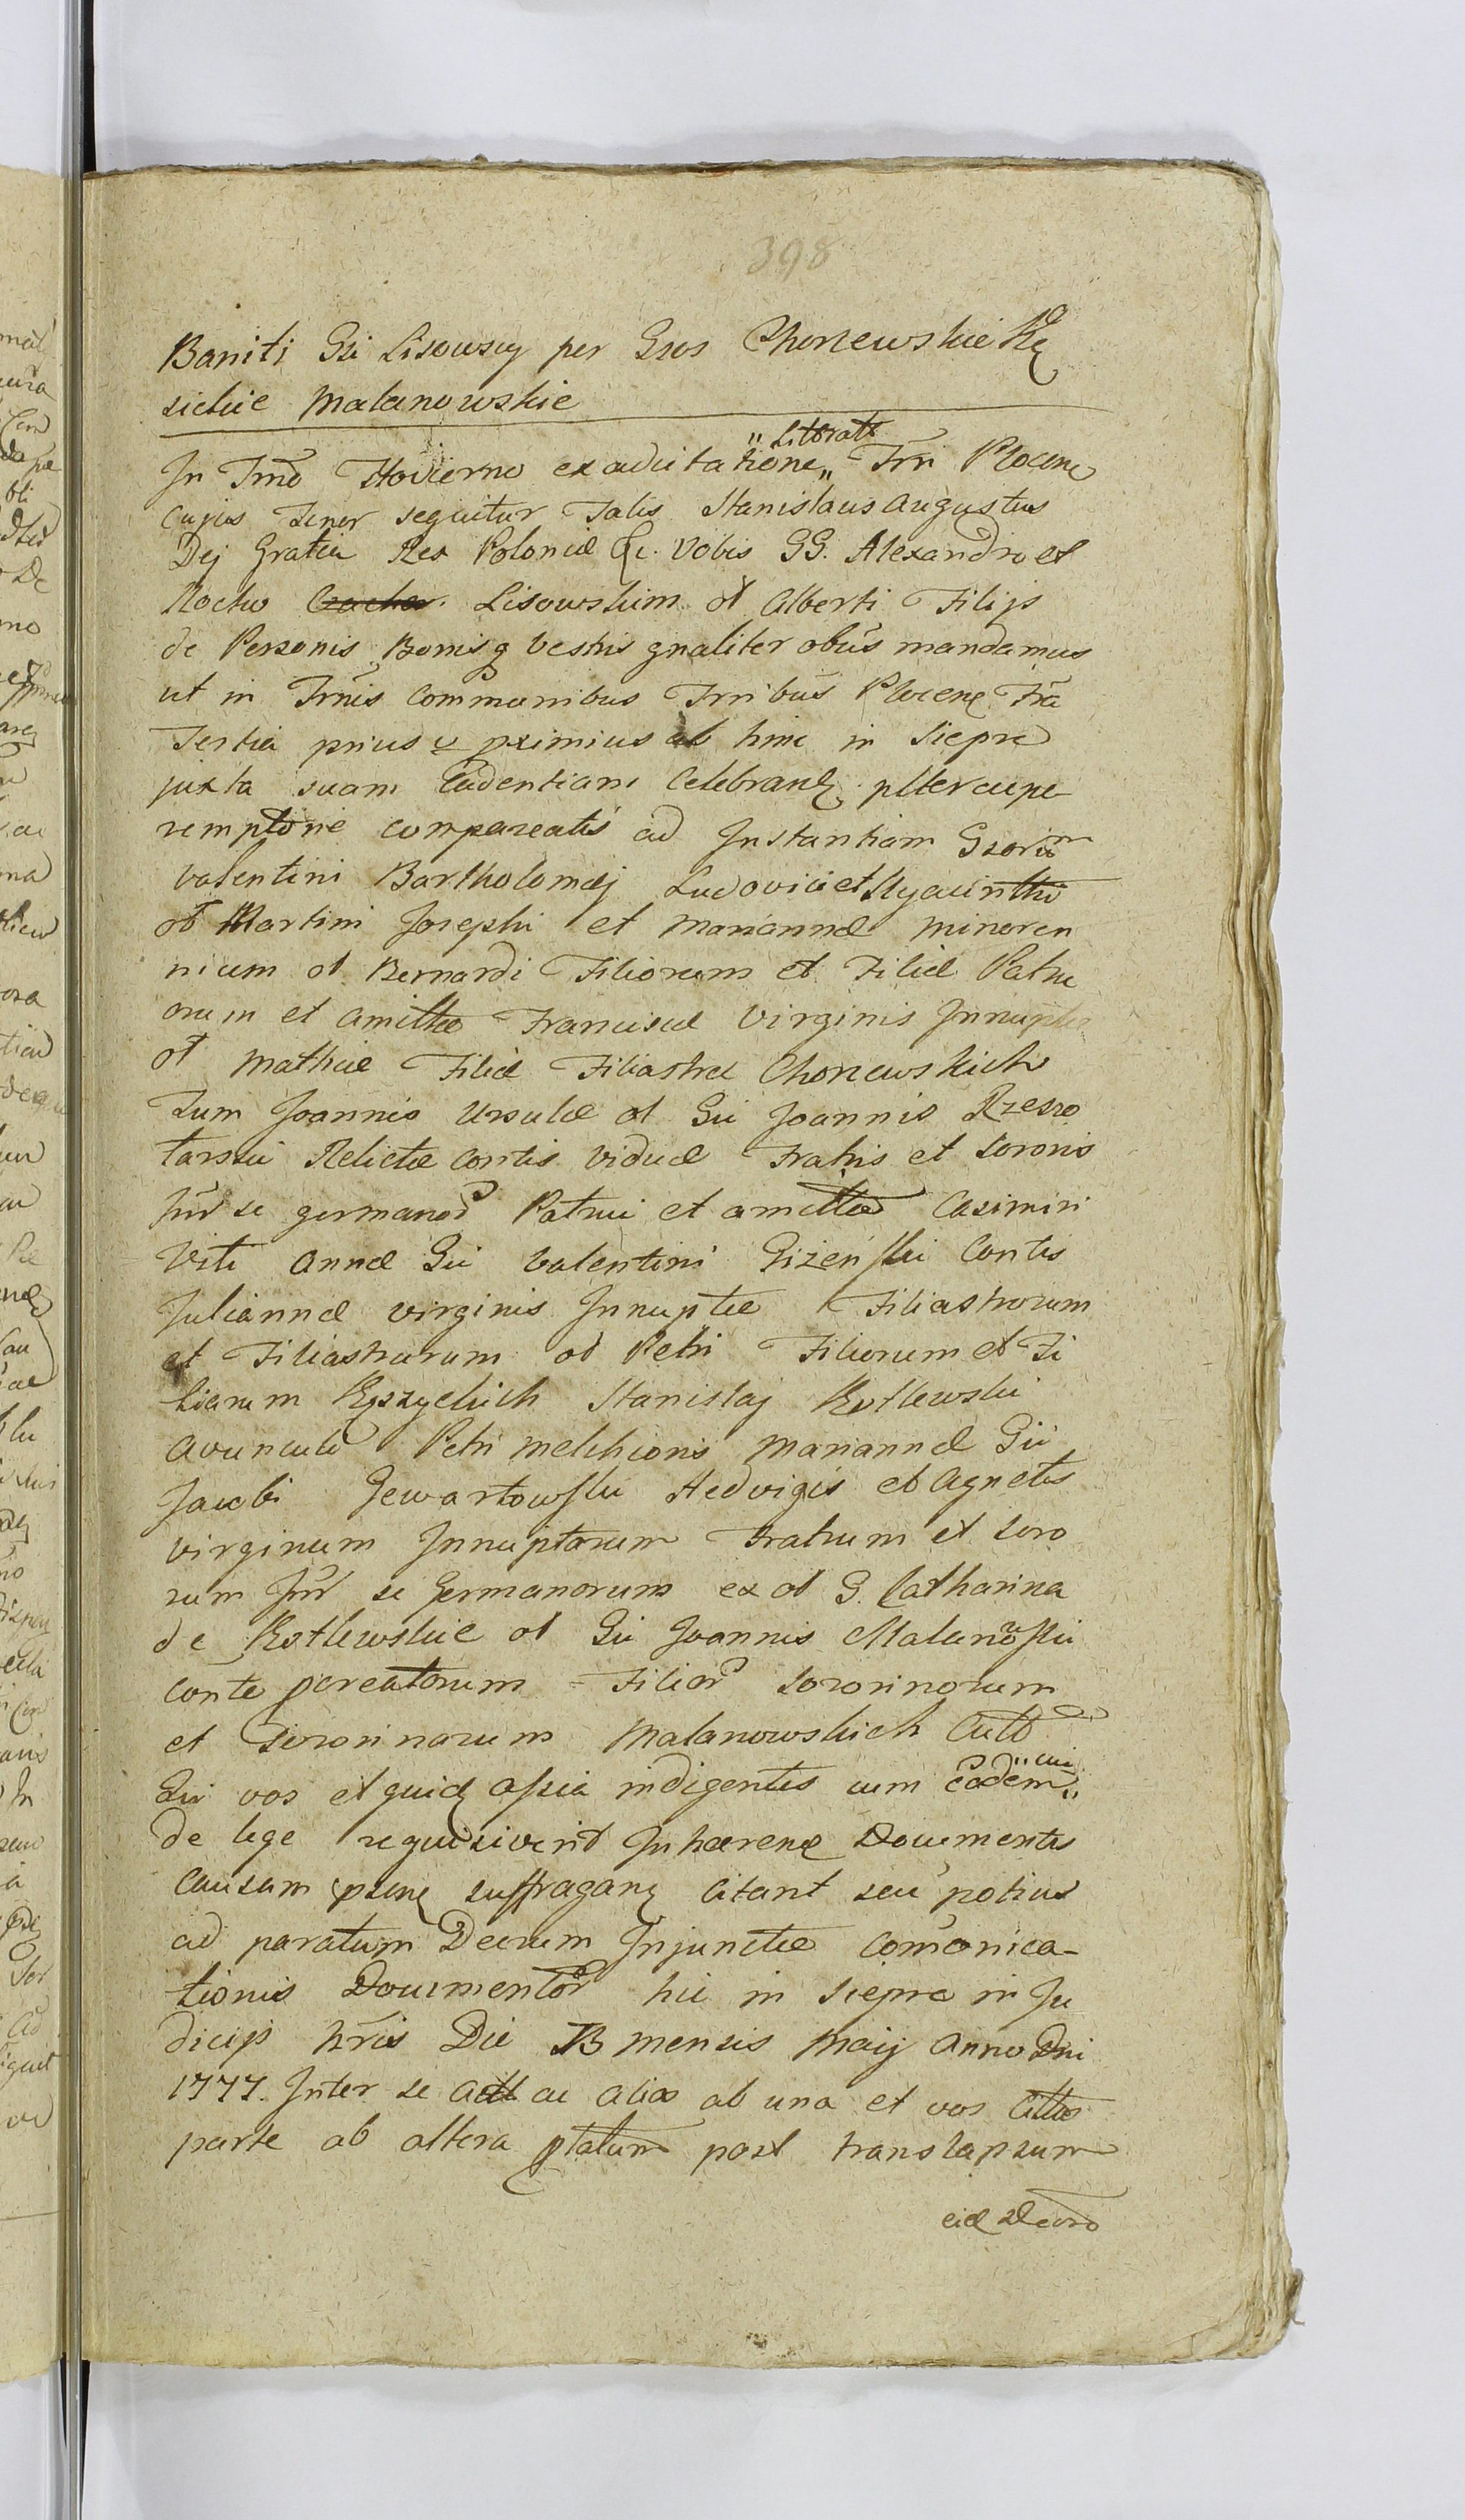 398
Baniti Gsi Lisowscy per Gsos Choncewskie Kę
sickie Malanowskie
In Trno Hodierno ex adcitatione „Literali„ Trri Plocen
cujus Tenor sequitur Talis Stanislaus Augustus
Dej Gratia Rex Poloniæ &c. Vobis GG. Alexandro et
Rocho Lisowskim ol Alberti Filijs
de Personis Bonisq vestris gnaliter obus mandamus
ut in Trnis Communibus Trribus Plocen Fra
Tertia prius et pximius ab hinc in Sieprc
juxta suam Cadentiam Celebran pltercupe
remptorie compareatis ad Instantiam Gsorum
Valentini Bartholomæj Ludovici et Hyacinthi
ol Martini Josephi et Mariannæ minoren
nium ol Bernardi Filiorum et Filiæ Patru
orum et Amittæ Franciscæ Virginis Innuptæ
ol Mathiæ Filiæ Filiastræ Choncewskich
Tum Joannis Ursulæ ol Gsi Joannis Rzeszo
tarski Relictæ Contis Viduæ Fratris et Sororis
Intr se germanor Patrui et amittæ Casimiri
Viti Annæ Gsi Valentini Giżeński Contis
Juliannæ Virginis Innuptæ Filiastrorum
et Filiastrarum ol Petri Filiorum et Fi
liarum Kęszyckich Stanislaj Kotlewski
Avunculi Petri Melchioris Mariannæ Gsi
Jacobi Gewartowski Hedvigis et Agnetis
Virginum Innuptarum Fratrum et Soro
rum Intr se Germanorum ex ol G. Catharina
de Kotlewskie ol Gsi Joannis Malanowski
Conte pcreatorum Filior Sororinorum
et Sororinarum Malanowskich
Qui vos et quid assia indigentis cum eadem „cui„
de lege requisiverit Inhæren Documentis
Causam psen suffragan Citant seu potius
ad paratum Decrum Injunctæ Comonica-
tionis Documentor hic in Siepre in Ju
dicijs hris Die 13 mensis Maij Anno Dni
1777. Inter se Actt ac alias ab una et vos Cittos
parte ab altera ptatum post translapsum